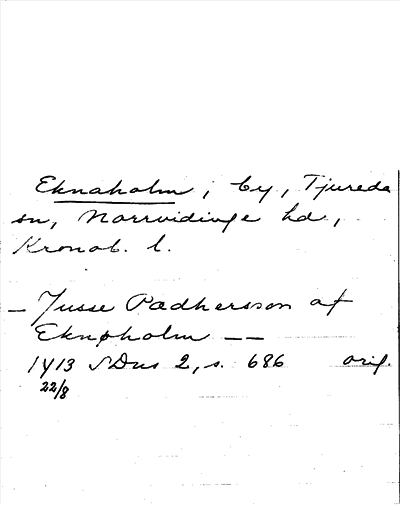 Eknaholm, by, Tjureda
sn, Norrvidinge hd,
Kronob. l.
— Jusse Pædhersson af
Eknøholm — —
1413 SDns 2, s. 686 orig.
22/8